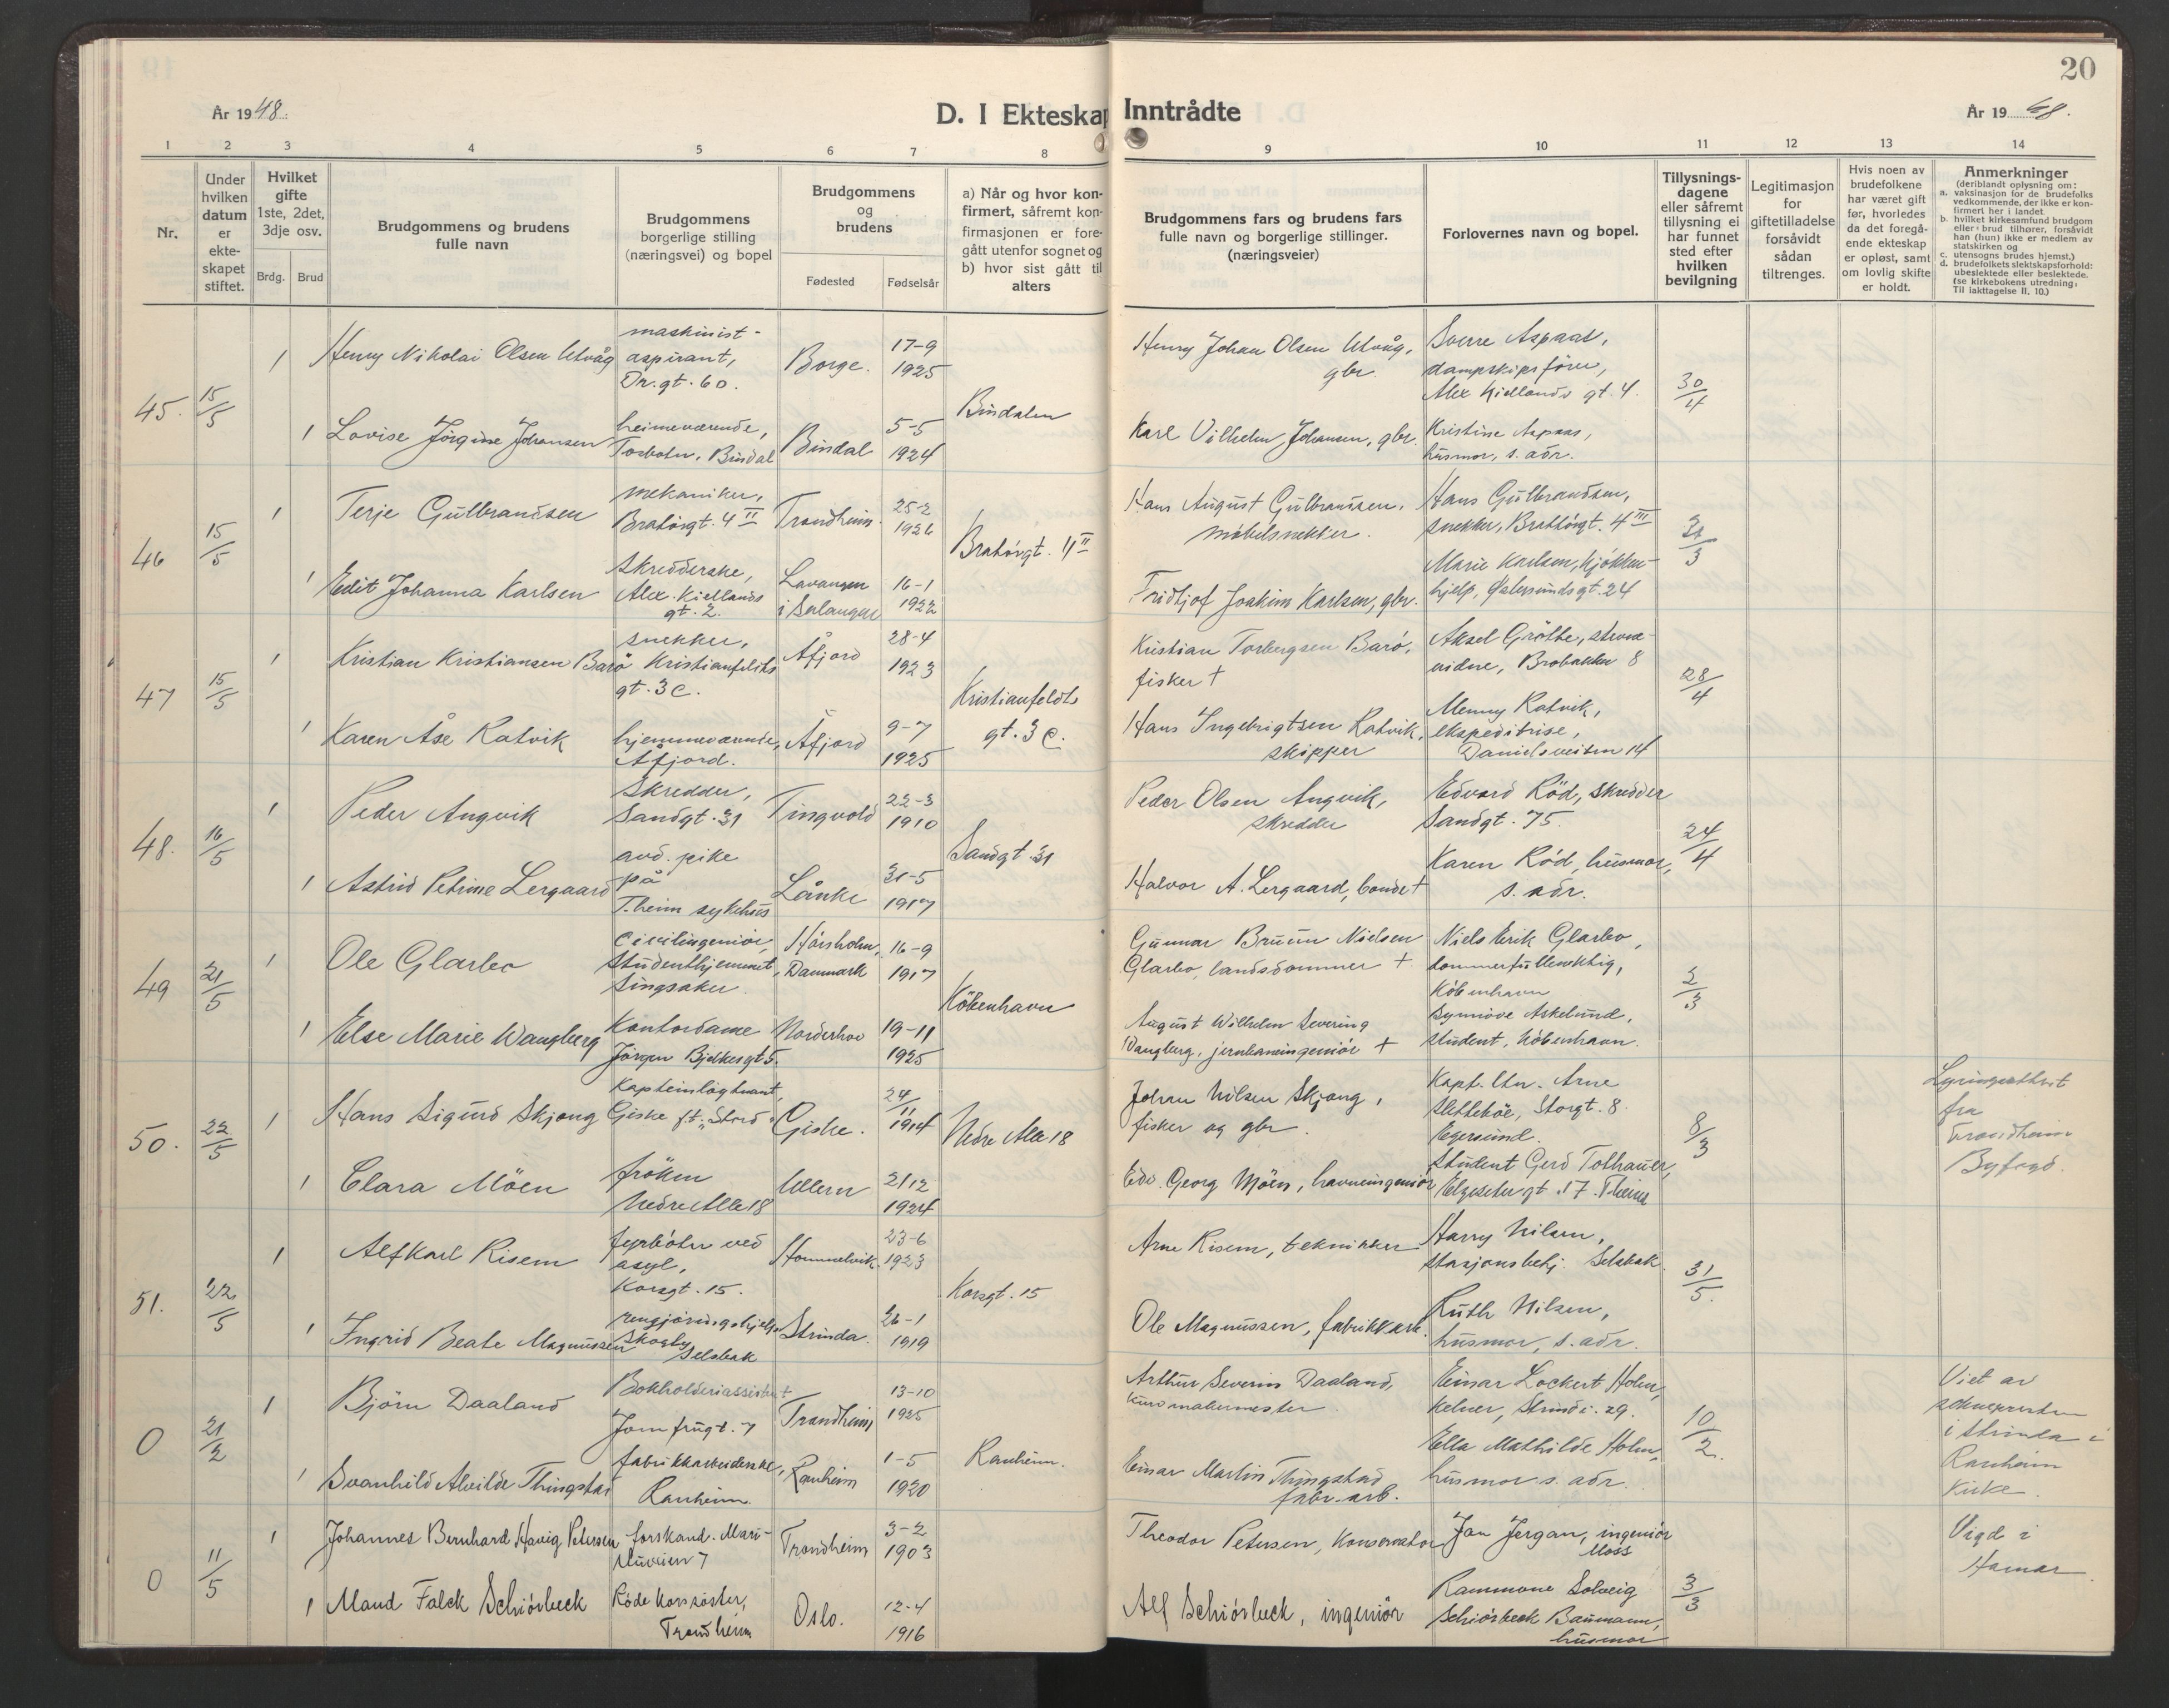 20
År 1948.
D. I Ekteskap
Inntrådte
År 1948.
1
2
3
4
5
6
7
8
9
10
11
12
13
14
Nr.
Under hvilken datum er ekte-skapet stiftet.
Hvilket gifte 1ste, 2det, 3dje osv.
Brdg.
Brud
Brudgommens og brudens fulle navn
Brudgommens borgerlige stilling (næringsvei) og bopel
Brudgommens og brudens
Fødested
Fødselsår
a) Når og hvor kon-
firmert, såfremt kon-
firmasjonen er fore-
gått utenfor sognet og
b) hvor sist gått til
alters
Brudgommens fars og brudens fars
fulle navn og borgerlige stillinger.
(næringsveier)
Forlovernes navn og bopel.
Tillysnings-
dagene
eller såfremt
tillysning ei
har funnet
sted efter
hvilken
bevilgning
Legitimasjon
for
giftetilladelse
forsåvidt
sådan
tiltrenges.
Hvis noen av
brudefolkene
har været gift
før, hvorledes
da det foregå-
ende ekteskap
er opløst, samt
om lovlig skifte
er holdt.
Anmerkninger
(deriblandt oplysning om:
a. vaksinasjon for de brudefolks
vedkommende, der ikke er kon-
firmert her i landet.
b. hvilket kirkesamfund brudgom
eller brud tilhører, forsåvidt
han (hun) ikke er medlem av
statskirken og
c. utensogns brudes hjemst.)
d. brudefolkets slektskapsforhold:
ubeslektede eller beslektede.
(se kirkebokens utredning:
Til iakttagelse II. 10.)
45. 15/5
1 Henry Nikolai Olsen Utvåg
maskinist-
aspirant,
Dr. gt. 60.
Borge. 17-9
1925
Bindalen
Henry Johan Olsen Utvåg,
gbr.
Sverre Aspaas,
dampskipsfører,
Alex Kiellands gt. 4.
30/4
1 Lovise Jørgine Johansen
heimeværende,
Terbotn, Bindal
Bindal 5-5
1924
Karl Vilhelm Johansen, gbr.
Kristine Aspaas,
husmor, s. adr.
46 15/5
1 Terje Gulbrandsen
mekaniker,
Bratörgt. 4 II
Trondheim. 25-2
1926
Bratörgt. 4 II
Hans August Gulbrandsen,
møbelsnekker.
Hans Gulbrandsen,
snekker, Brattörgt. 4 III
1 Edit Johanna Karlsen
Skredderske,
Alex. Kiellands
gt. 2.
Lavangen
i Salangen
16-1
1922
Fridtjof Joakim Karlsen, gbr.
Marie Karlsen, kjökken-
hjelp, Ålesundsgt. 24
47 15/5
1 Kristian Kristiansen Barö
snekker,
Kristianfeldts
gt. 3 c.
Åfjord 28-4
1923
Kristianfeldts
gt. 3 c.
Kristian Torbergsen Barö,
fisker †
Aksel Grötte, stuer-
, Brobakken 8
28/4
1 Karen Åse Ratvik
hjemmeværende,
Åfjord.
Åfjord 9-7
1925
Hans Ingebrigtsen Ratvik,
skipper
Menny Ratvik,
ekspeditrise,
Danielsveien 14
48. 16/5
1 Peder Angvik
Skredder,
Sandgt. 31
Tingvold 22-3
1910
Sandgt. 31
Peder Olsen Angvik,
skredder
Edvard Röd, skredder
Sandgt. 75.
24/4
1 Astrid Petrine Lergaard
avd. pike
på
T.heim sykehus
Lånke 31-5
1917
Halvor A. Lergaard, bonde †
Karen Röd, husmor,
s. adr.
49 21/5
1 Ole Glarbo
Civilingeniör,
Studenthjemmet,
Singsaker
Hörsholm,
Danmark
16-9
1917
Köbenhavn
Gunnar Bruun Nielsen
Glarbo, landsdommer †
Niels Erik Glarbo,
dommerfullmektig,
Köbenhavn
2/3
1 Else Marie Wangberg
Kontordame
Jörgen Bjelkesgt 5.
Norderhov 19-11
1925
August Wilhelm Severing
Wangberg, jernbaneingeniör †
Synnöve Askelund,
student, Köbenhavn.
50. 22/5
1 Hans Sigurd Skjong
Kapteinlöytnant,
Giske f.t. "Stord"
Giske. 24/11
1914
Nedre Alle 18
Johan Nilsen Skjong,
fisker og gbr.
Kapt. ltn. Arne
Sletteböe, Storgt. 8.
Egersund.
8/3
Lysningsattest
fra
Trondheim
Byfogd.
1 Clara Möen
fröken
Nedre Alle 18
Ullern 21/12
1924
Edv. Georg Möen, havneingeniör
Student Gerd Tothauer,
Elgeseter gt. 17. Theim
51. 22/5
1 Alf Karl Risem
fyrböter ved
asyl,
Korsgt. 15.
Hommelvik. 23-6
1923
Korsgt. 15
Arne Risem, tekniker
Harry Nilsen,
stasjonsbetj. Selsbak.
31/5.
1 Ingrid Beate Magnussen
rengjöringshjelp
Skogly
Selsbak
Strinda. 26-1
1919
Ole Magnussen, fabrikkarb.
Ruth Nilsen,
husmor, s. adr.
0 21/2
1 Björn Daaland
Bokholderiassistent
Jomfrugt. 7
Trondheim 13-10
1925
Ranheim.
Arthur Severin Daaland,
kurvmakermester.
Einar Lockert Holm,
kelner, Strindv. 29.
10/2
Viet av
soknepresten
i Strinda i
Ranheim
Kirke.
1 Svanhild Alvilde Thingstad
fabrikkarbeiderske,
Ranheim.
Ranheim 1-5
1920
Einar Martin Thingstad
fabr.-arb.
Ella Mathilde Holm,
husmor s. adr.
0 11/5
1 Johannes Bernhard Havig Petersen
forskand. Mari-
sluveien 7
Trondheim 3-2
1903
Theodor Petersen, Konservator
Jan Jergan, ingeniör
Moss
3/3
Vigd i
Hamar.
1 Maud Falck Schiörbeck
Röde Korssöster,
Trondheim
Oslo. 12-4
1916
Alf Schiörbeck, ingeniör
Solveig
Schiörbeck Baumann,
husmor